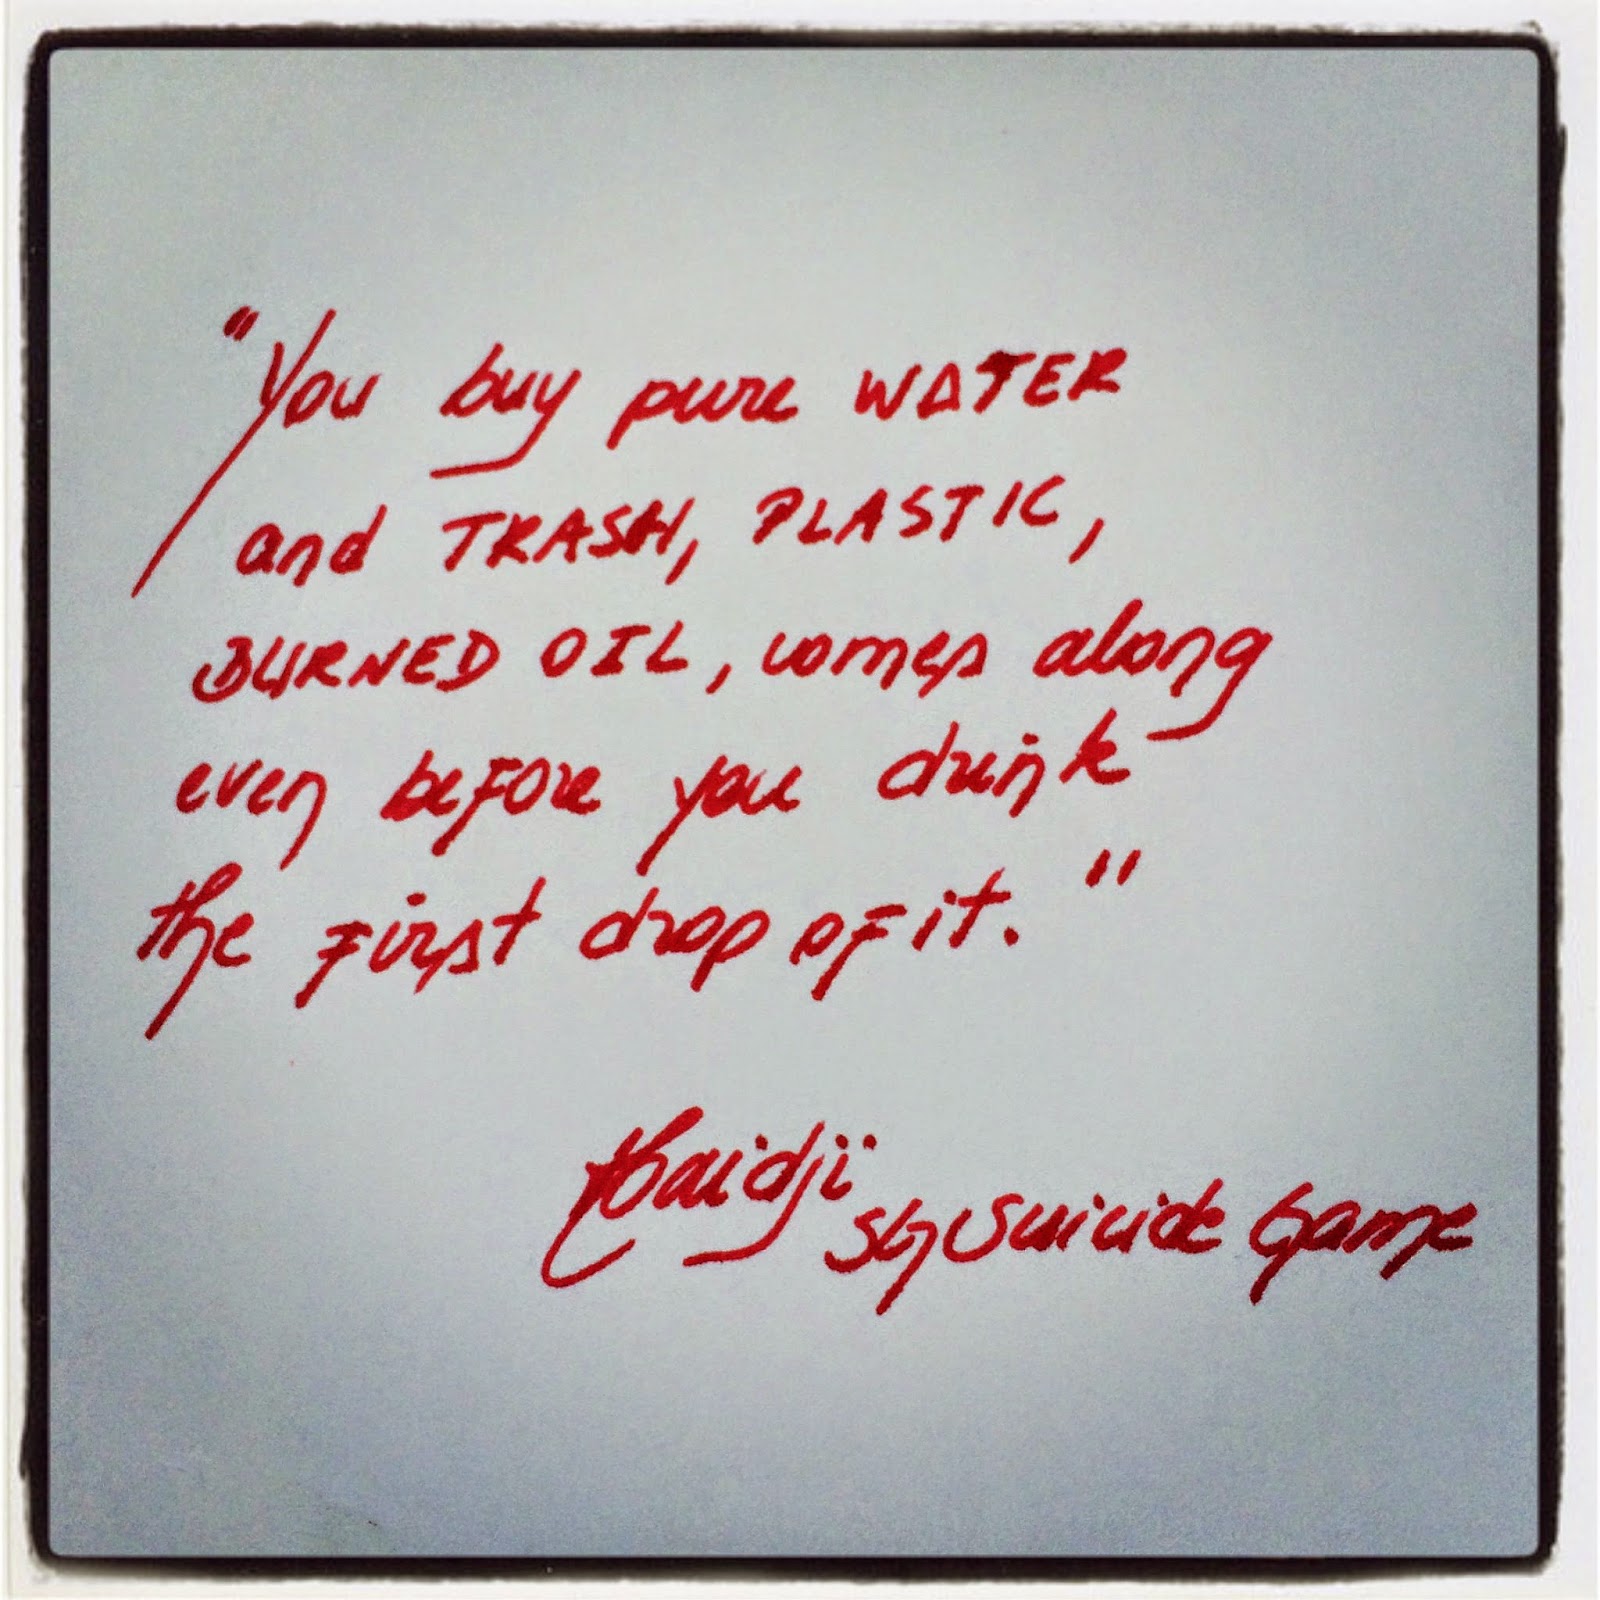 "You buy pure WATER
and TRASH, PLASTIC,
BURNED OIL, comes along
even before you drink
the first drop of it."
Haidji
SG Suicide Game